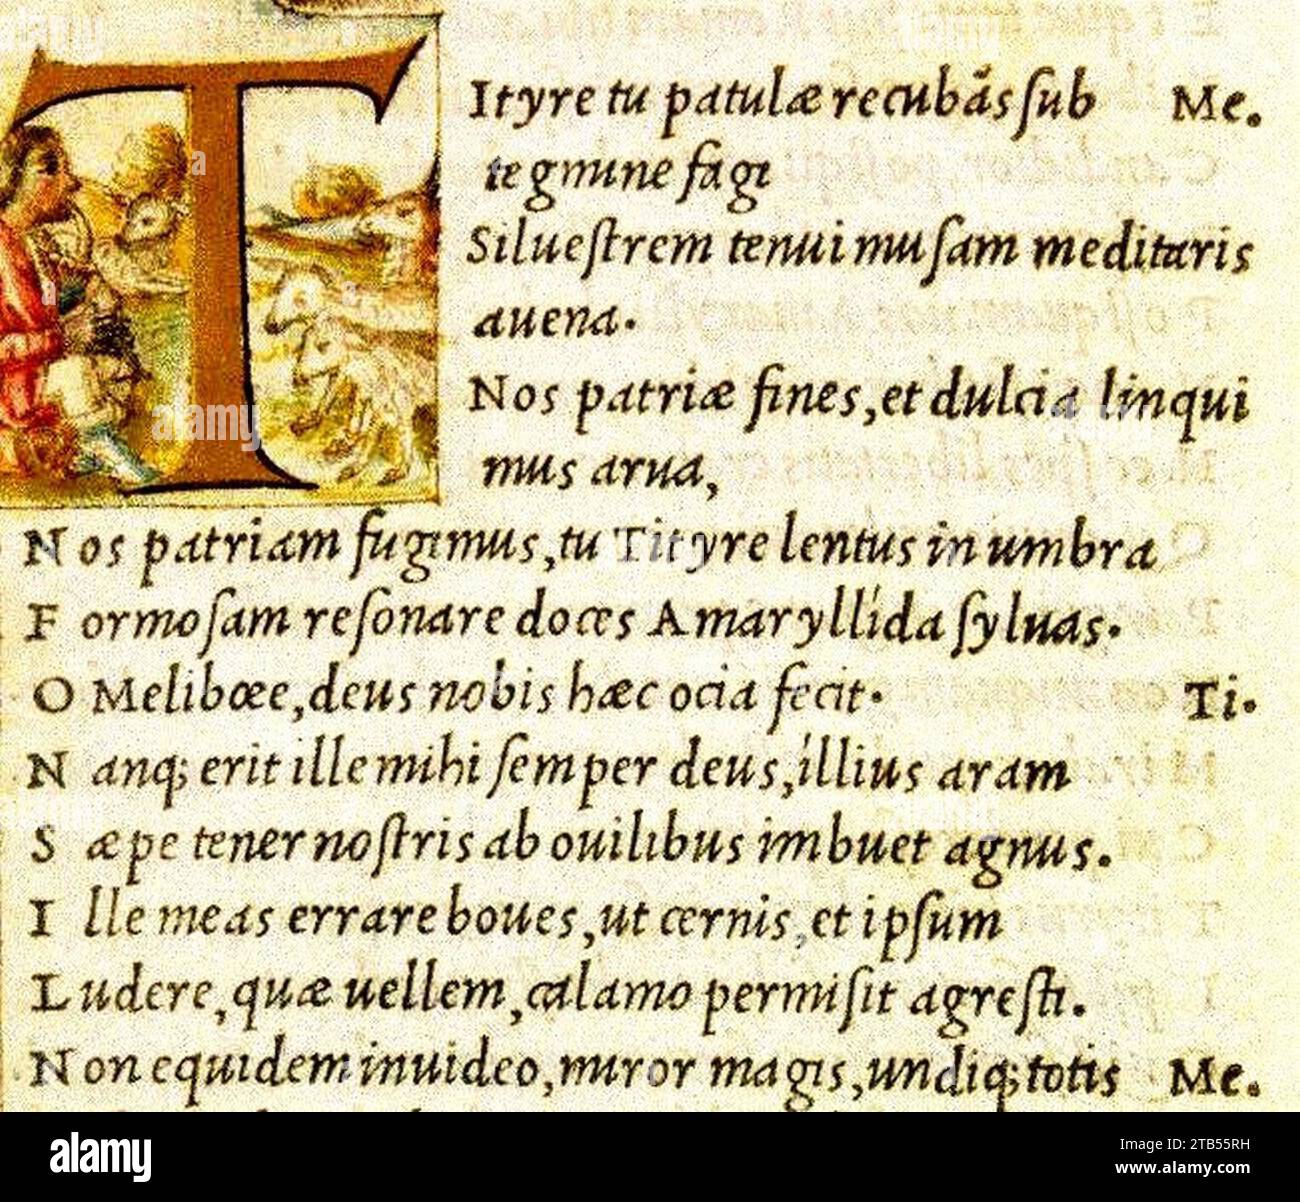 TItyre tu patulæ recubās sub Me.
tegmine fagi
Siluestrem tenui musam meditaris
auena.
Nos patriæ fines, et dulcia linqui
mus arua,
Nos patriam fugimus, tu Tityre lentus in umbra
Formosam resonare doces Amaryllída syluas.
O Melibœe, deus nobis hæc ocia fecit. Ti.
Nanq; erit ille mihi semper deus, íllius aram
Sæpe tener nostris ab ouilibus imbuet agnus.
Ille meas errare boues, ut cernis, et ipsum
Ludere, quæ uellem, calamo permisit agresti.
Non equidem inuideo, miror magis, undiq; totis Me.
alamy
Image ID: 2TB55RH
www.alamy.com